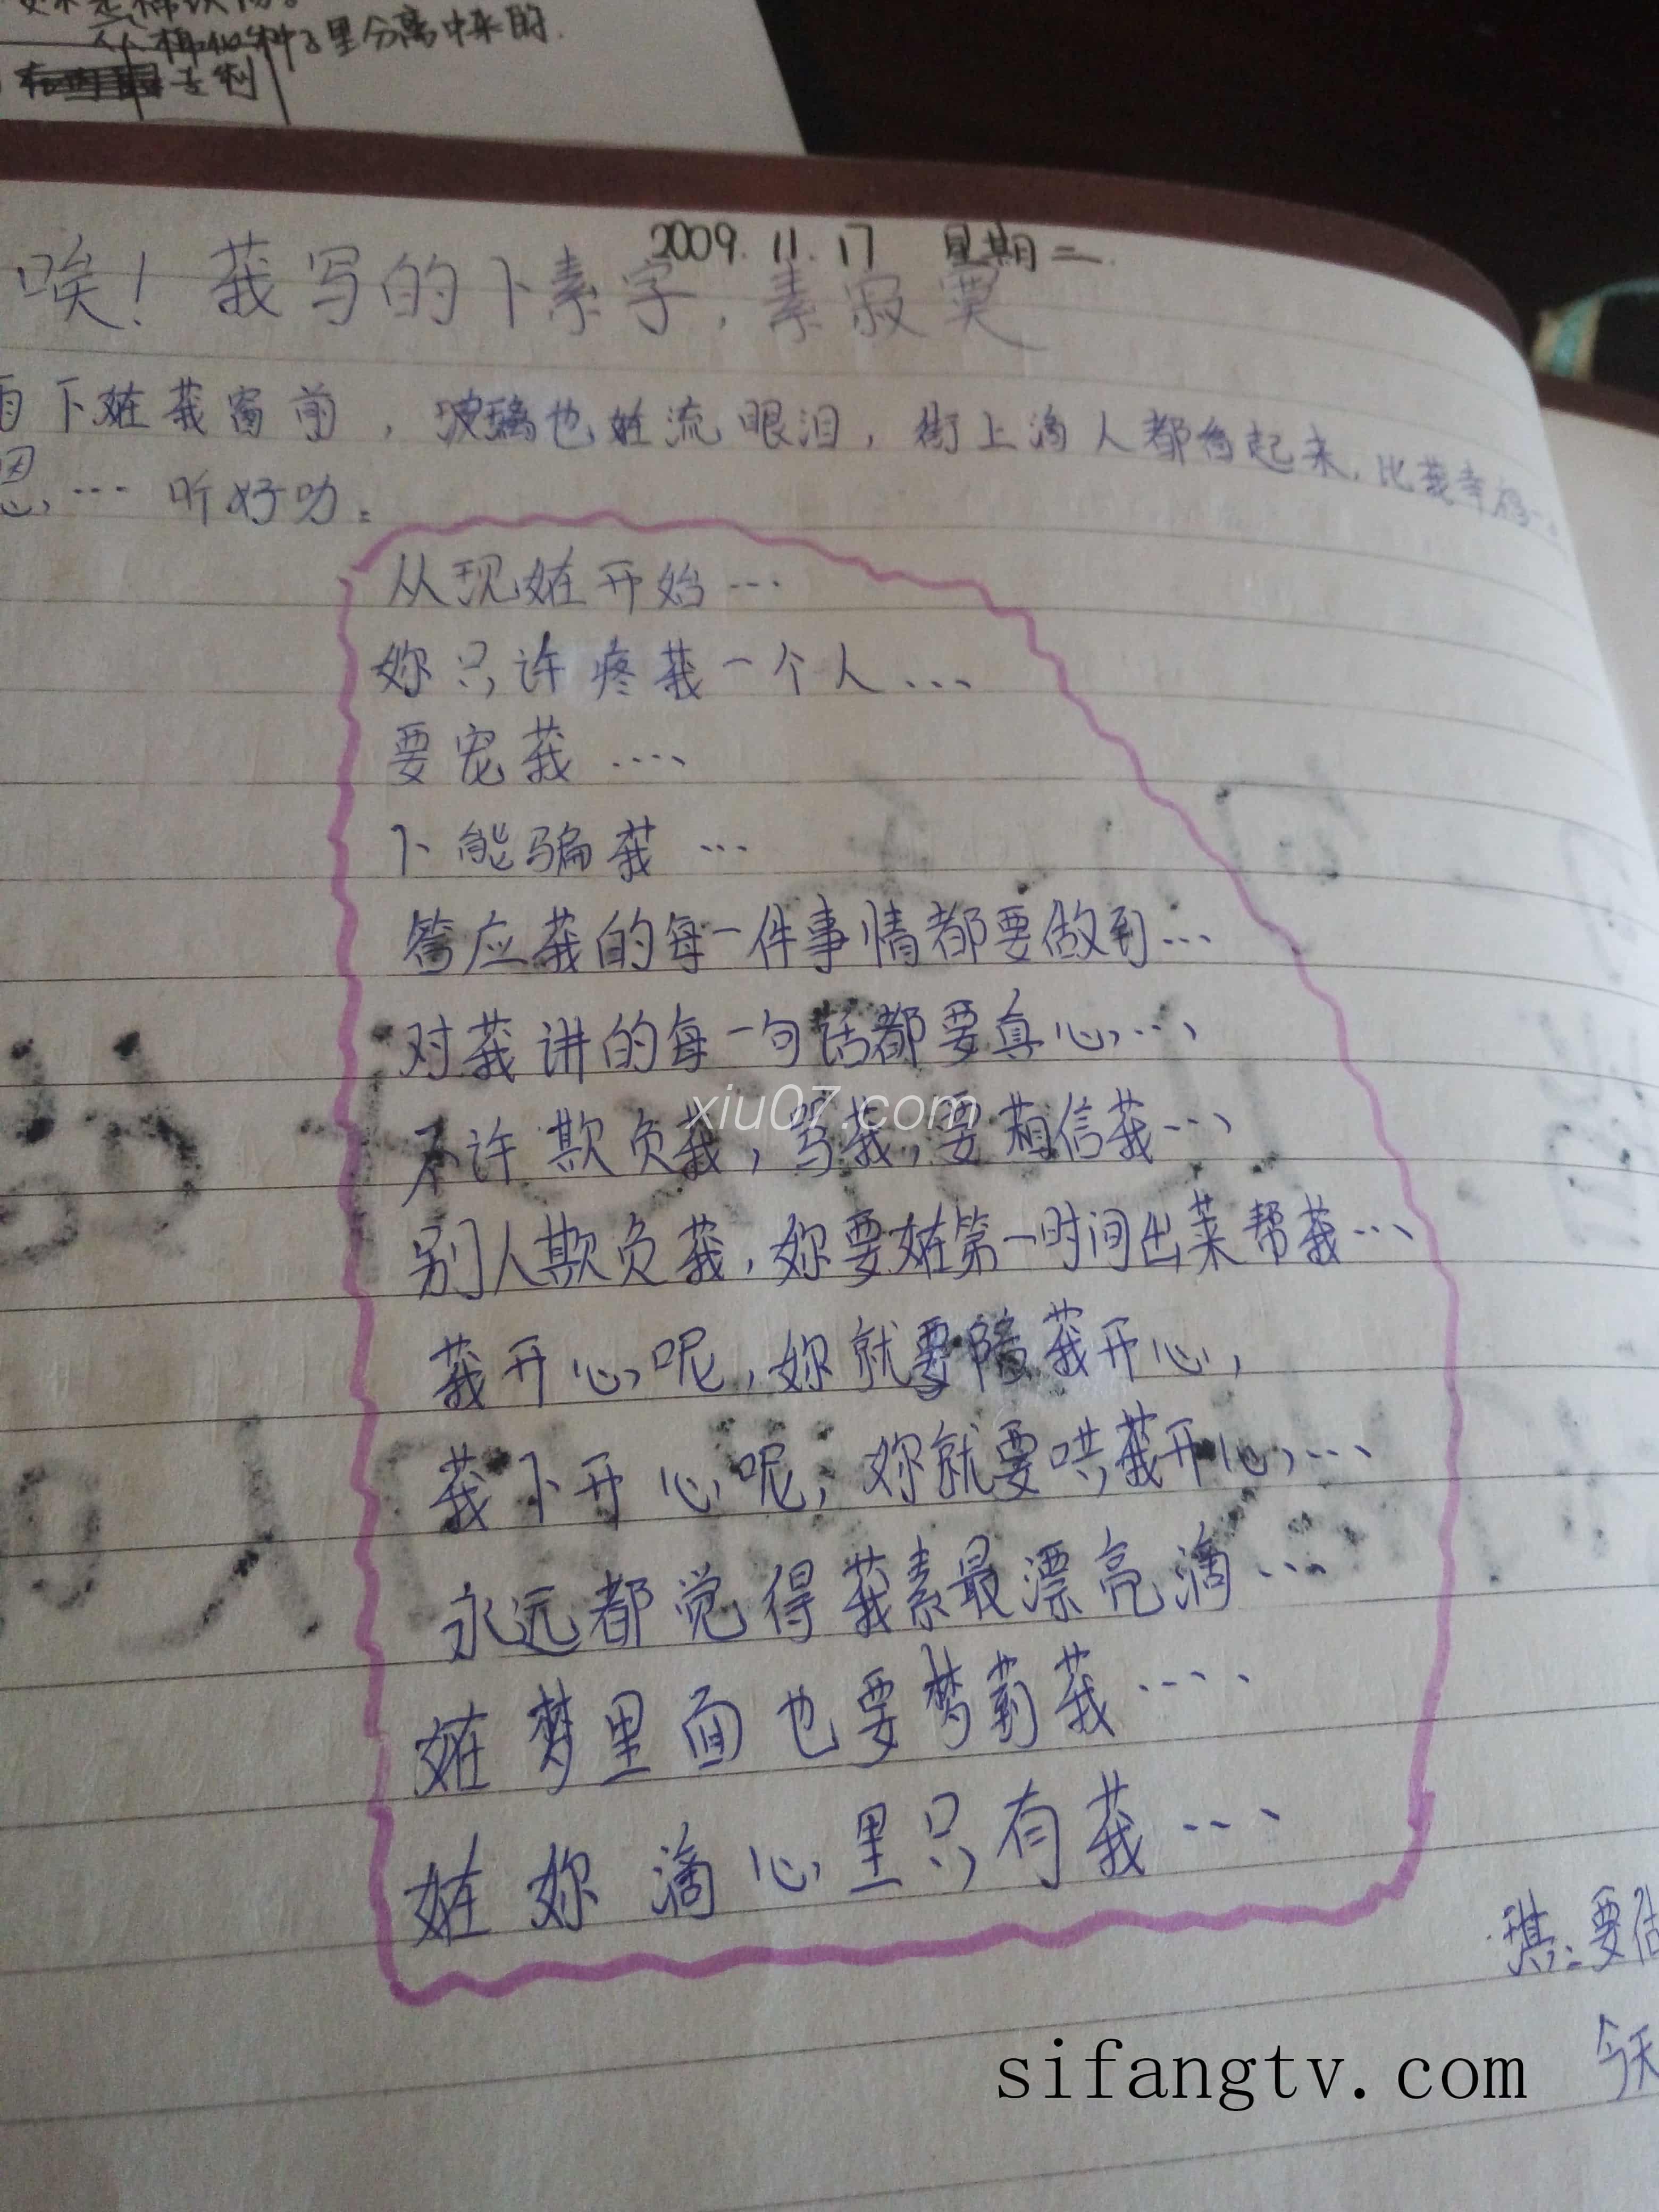 里分离中来的.
专利
2009. 11. 17 星期二.
唉! 莪写的卜素字, 素寂寞
雨下㛗莪窗前, 玻璃也㛗流眼泪, 街上滴人都看起来, 比莪幸福…
恩… 听好叻。
从现㛗开始…
妳只许疼莪一个人…
要宠莪…
卜能骗莪…
答应莪的每一件事情都要做到…
对莪讲的每一句话都要真心…
不许欺负莪, 骂莪, 要相信莪…
别人欺负莪, 妳要㛗第一时间出莱帮莪…
莪开心呢, 妳就要陪莪开心,
莪卜开心呢, 妳就要哄莪开心…
永远都觉得莪素最漂亮滴…
㛗梦里面也要梦菿莪…
㛗妳滴心里只有莪…
琪: 要
今天
xiu07.com
sifangtv.com